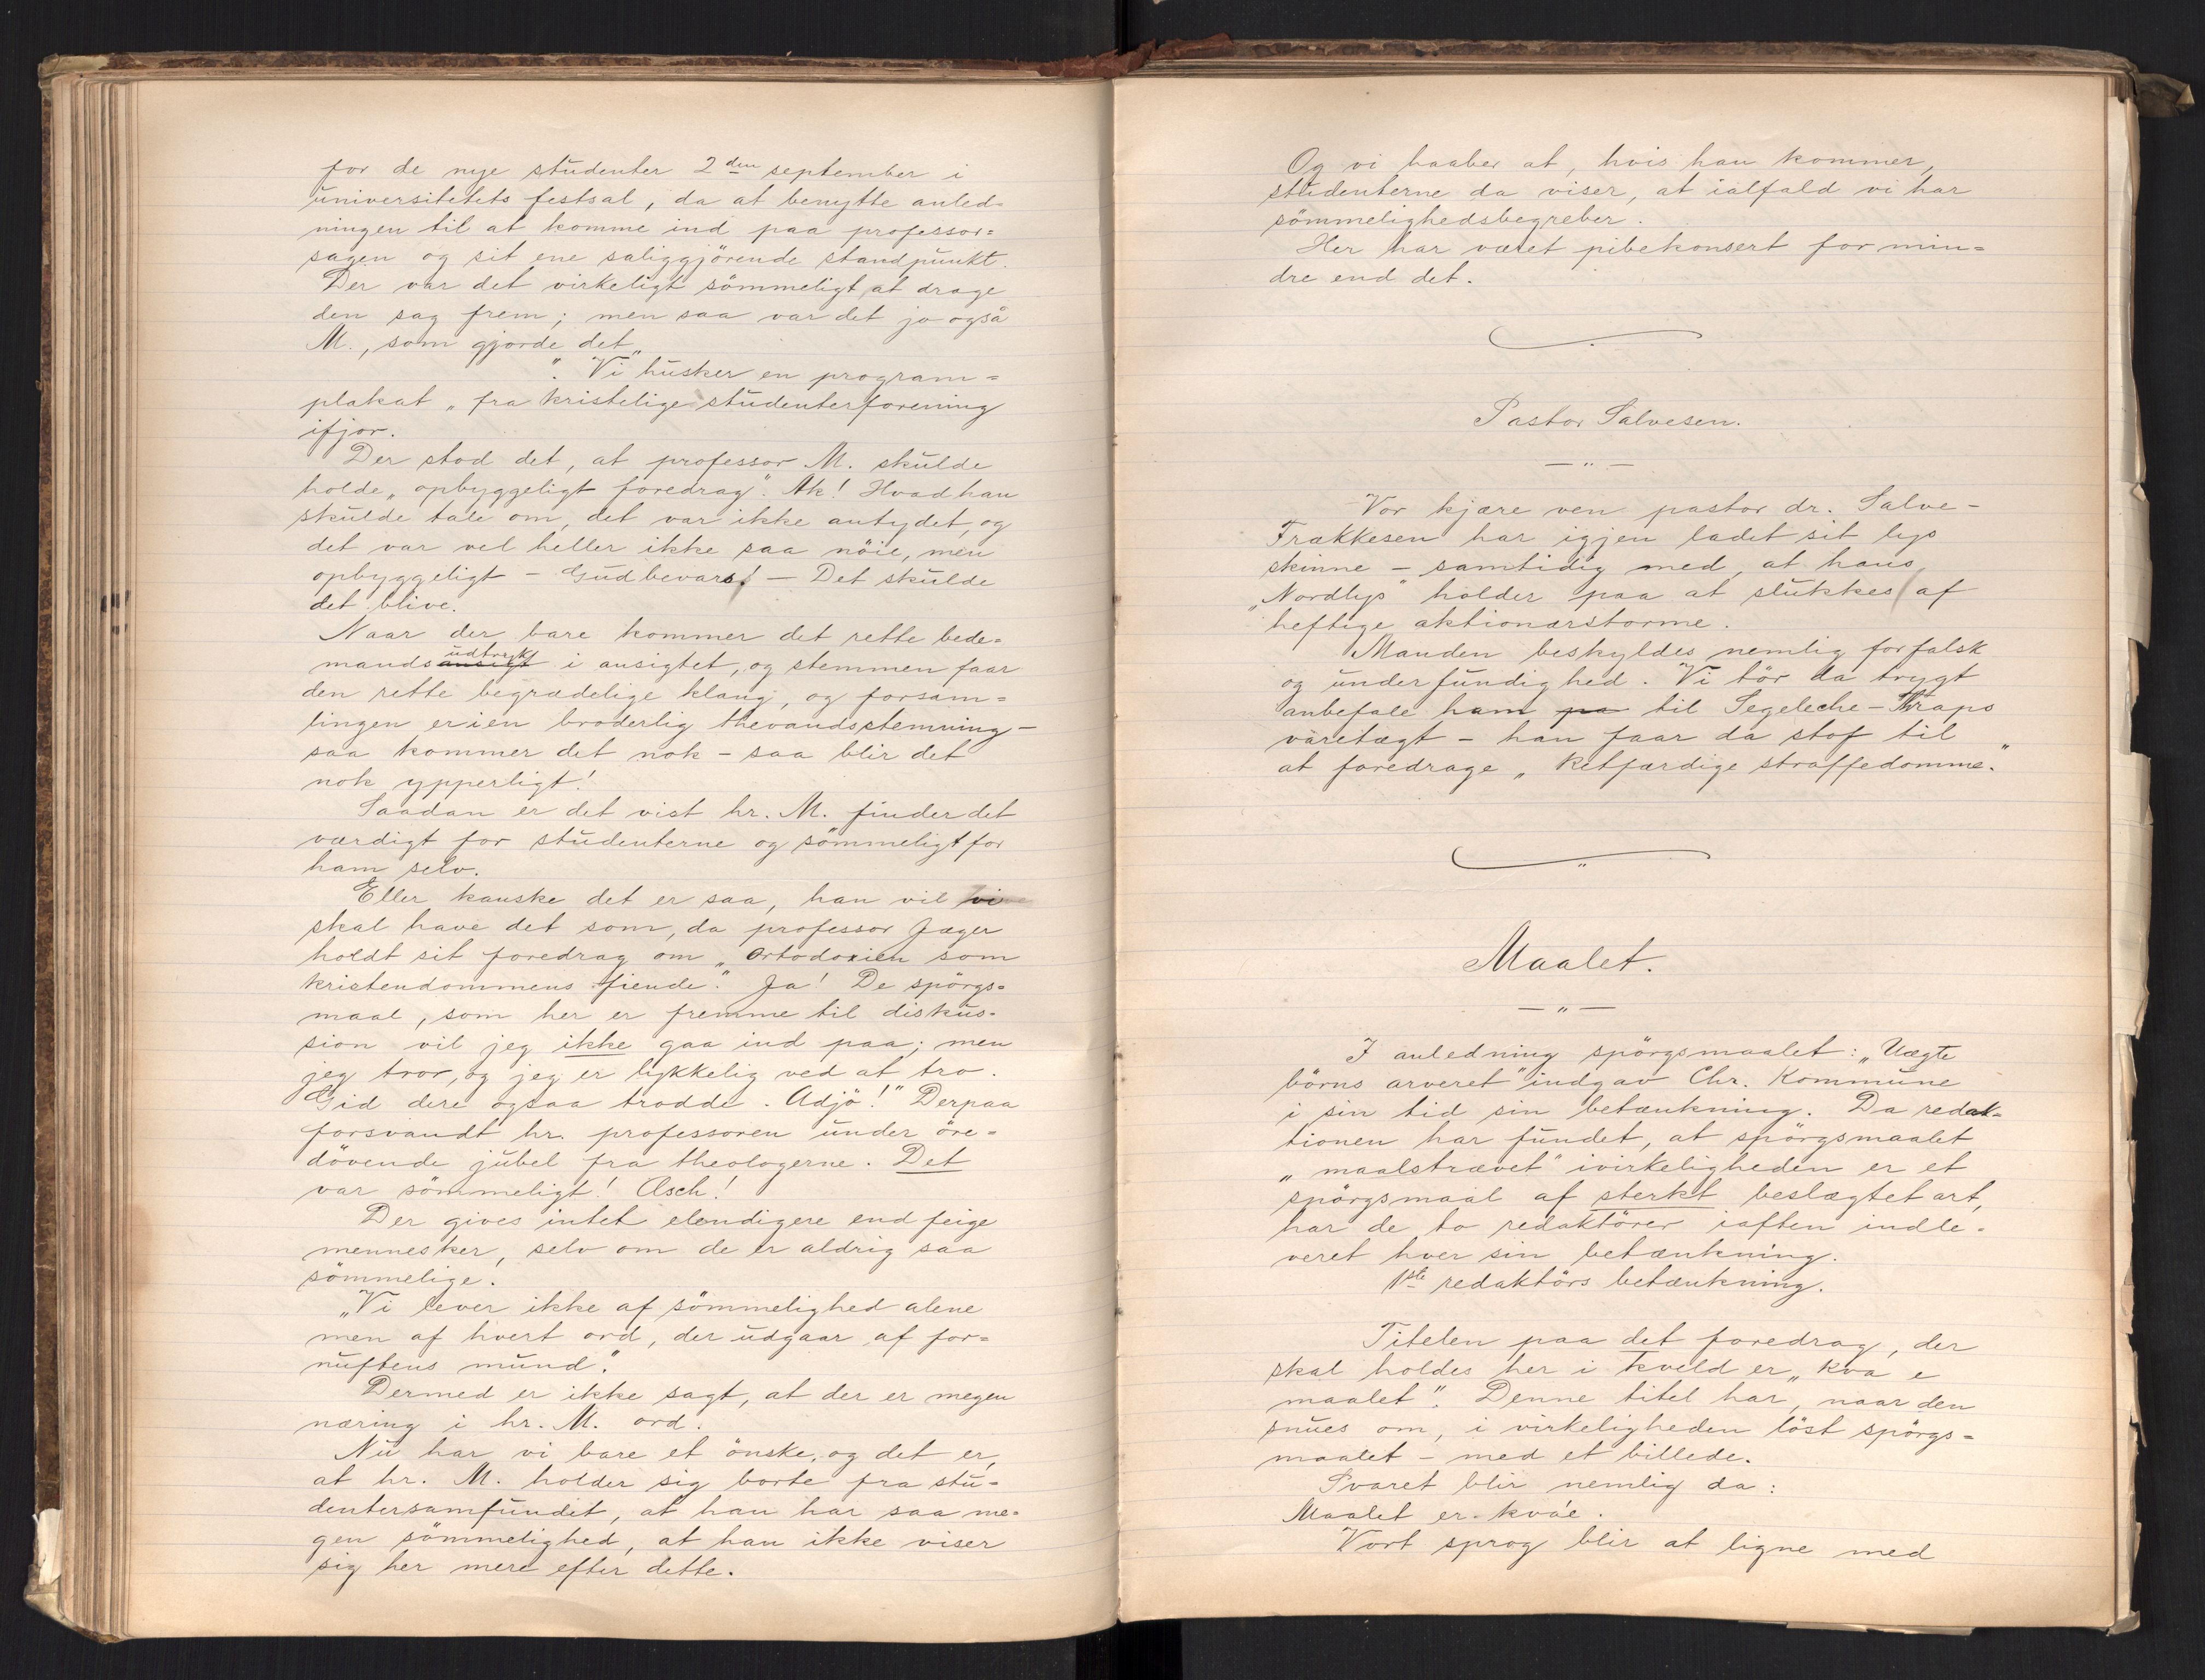 for de nye studenter 2den september i
universitetets festsal, da at benytte anled-
ningen til at komme ind paa professor-
sagen og sit ene saliggjörende standpunkt.
Der var det virkeligt sömmeligt at drage
den sag frem; men saa var det jo også
M., som gjorde det.
"Vi" husker en program-
plakat „fra kristelige studenterforening
ifjor.
Der stod det, at professor M. skulde
holde „opbyggeligt foredrag". Ak! Hvad han
skulde tale om, det var ikke antydet, og
det var vel heller ikke saa nöie, men
opbyggeligt - Gud bevars! - Det skulde
det blive.
Naar der bare kommer det rette bede-
mandsudtryk i ansigtet, og stemmen faar
den rette begrædelige klang, og forsam-
lingen er i en broderlig thevandsstemning -
saa kommer det nok - saa blir det
nok ypperligt!
Saadan er det vist hr. M. finder det
værdigt for studenterne og sömmeligt for
ham selv.
Eller kanske det er saa, han vil vi
skal have det som, da professor Jæger
holdt sit foredrag om „Ortodoxien som
kristendommens fiende." Ja! De spörgs-
maal, som her er fremme til diskus-
sion vil jeg ikke gaa ind paa; men
jeg tror, og jeg er lykkelig ved at tro.
Gid dere ogsaa trodde. Adjö!" Derpaa
forsvandt hr. professoren under öre-
dövende jubel fra theologerne. Det
var sömmeligt! Æsch!
Der gives intet elendigere end feige
mennesker, selv om de er aldrig saa
sömmelige.
„Vi lever ikke af sömmelighed alene
men af hvert ord, der udgaar af for-
nuftens mund".
Dermed er ikke sagt, at der er megen
næring i hr. M. ord.
Nu har vi bare et önske, og det er,
at hr. M. holder sig borte fra stu-
dentersamfundet, at han har saa me-
gen sömmelighed, at han ikke viser
sig her mere efter dette.
Og vi haaber at, hvis han kommer,
studenterne da viser, at ialfald vi har
sömmelighedsbegreber.
Her har været pibekonsert for min-
dre end det.
Pastor Salvesen.
Vor kjære ven pastor dr. Salve-
Frækkesen har igjen ladet sit lys
skinne - samtidig med, at hans
„Nordlys" holder paa at slukkes af
heftige aktionærstorme.
Manden beskyldes nemlig for falsk
og underfundighed. Vi tör da trygt
anbefale ham pa til Segelcke-Thraps
väretægt - han faar da stof til
at foredrage „Retfærdige straffedomme."
Maalet.
I anledning spörgsmaalet: „Uægte
börns arveret" indgav Chr. Kommune
i sin tid sin betænkning. Da redak-
tionen har fundet, at spörgsmaalet
„maalstrævet" ivirkeligheden er et
spörgsmaal af sterkt beslægtet art,
har de to redaktörer iaften indle-
veret hver sin betænkning.
1ste redaktörs betænkning.
Titelen paa det foredrag, der
skal holdes her i kveld er „Kva e
maalet". Denne titel har, naar den
snues om, i virkeligheden löst spörgs-
maalet - med et billede.
Svaret blir nemlig da:
Maalet er - kvaé.
Vort sprog blir at ligne med